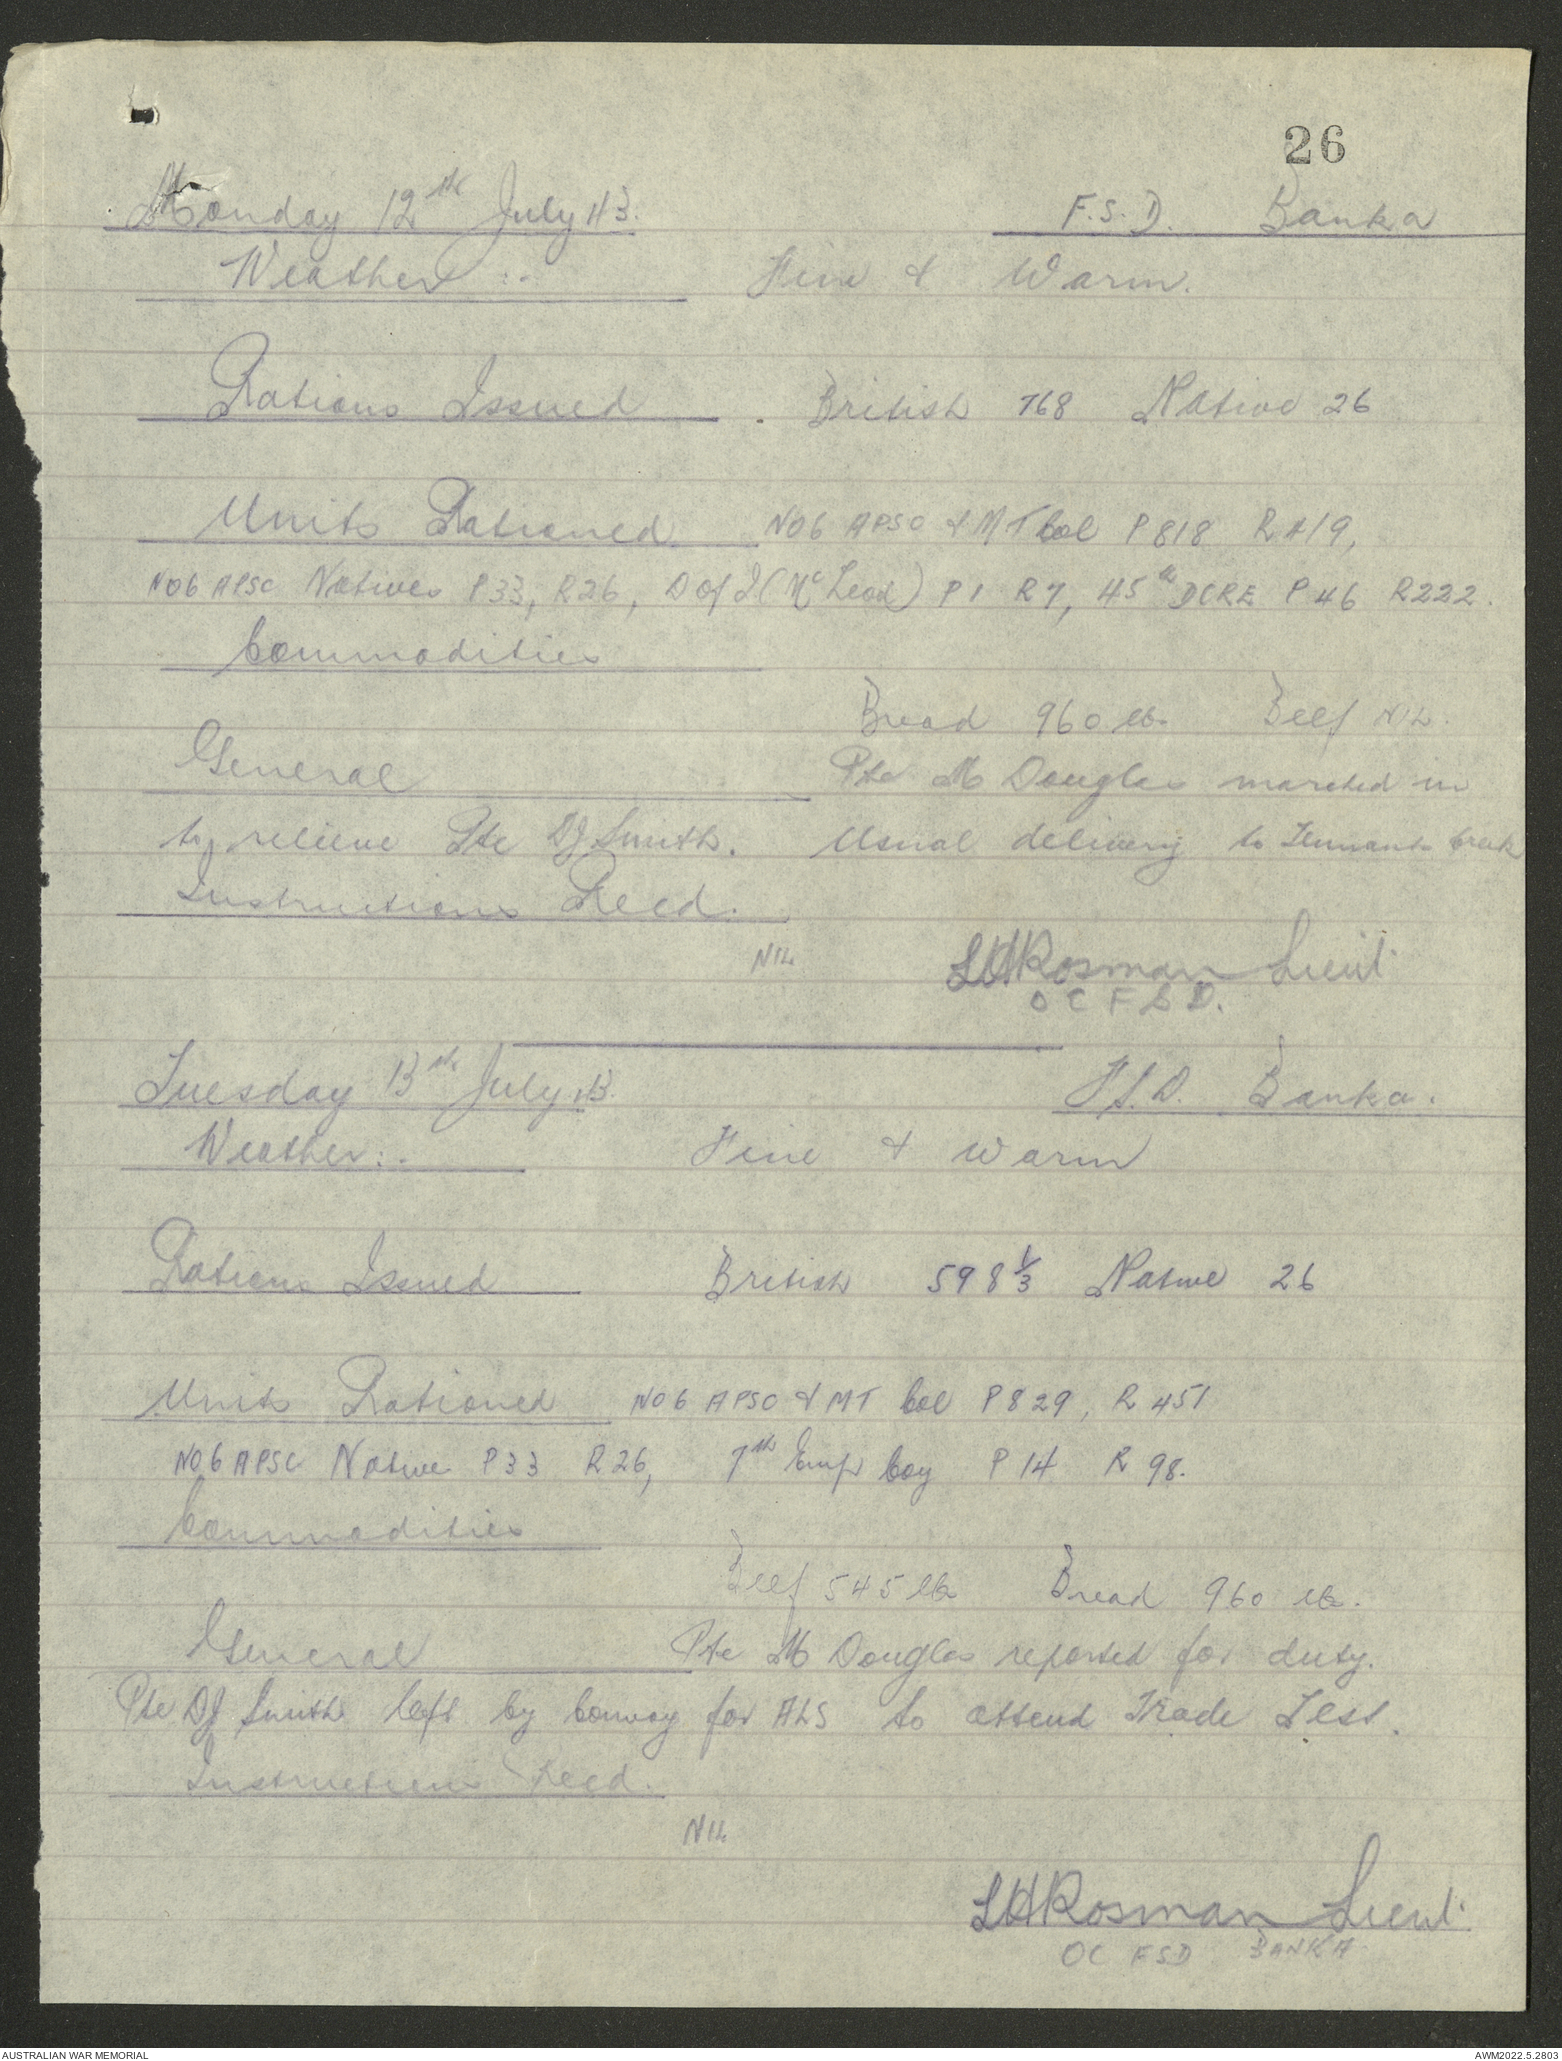 26
Monday 12th July 43. F.S.D. Banka
Weather :- Fine & Warm.
Rations Issued. British 768 Native 26
Units Rationed No 6 APSO & MT Col P818 R419,
No 6 APSC Natives P33, R26, D of I (McLeod) P1 R7, 45th DCRE P46 R222.
Commodities
Bread 960 lbs Beef NIL.
General Pte M Douglas marched in
to relieve Pte DJ Smith. Usual delivery to Tennant Creek
Instructions Recd.
NIL LHRosman Lieut
OC FSD.
Tuesday 13th July 43. F.S.D. Banka.
Weather :- Fine & Warm
Rations Issued British 598 1/3 Native 26
Units Rationed No 6 APSO & MT Col P829, R 451
No 6 APSC Native P33 R26, 7th Emp Coy P14 R98.
Commodities
Beef 545 lbs Bread 960 lbs.
General Pte M Douglas reported for duty.
Pte DJ Smith left by convoy for ALS to attend Trade Test.
Instructions Recd.
NIL
LHRosman Lieut
OC FSD BANKA
AUSTRALIAN WAR MEMORIAL AWM2022.5.2803